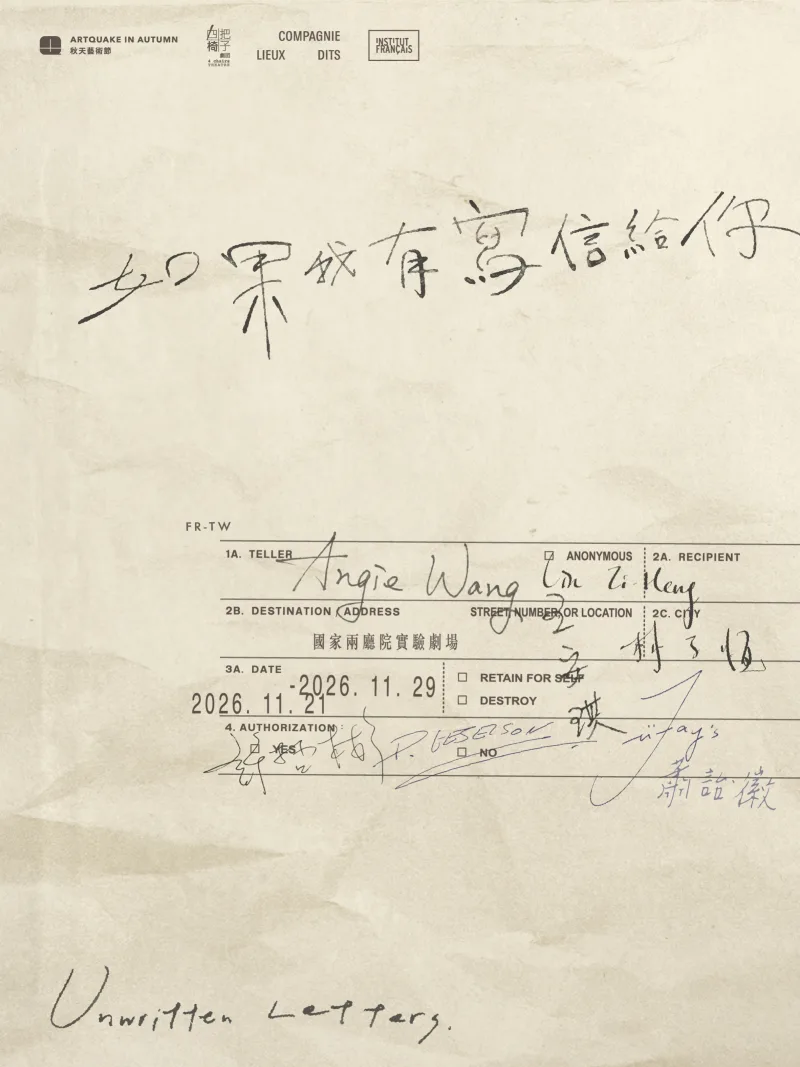 ARTQUAKE IN AUTUMN
秋天藝術節
四把椅子
劇團
4 CHAIRS
THEATRE
COMPAGNIE
LIEUX DITS
INSTITUT
FRANÇAIS
如果我有寫信給你
FR-TW
1A. TELLER
Angie Wang
ANONYMOUS
2A. RECIPIENT
Lin Zi-Heng
2B. DESTINATION / ADDRESS
STREET NUMBER OR LOCATION
2C. CITY
國家兩廳院實驗劇場
王安琪
林子恆
3A. DATE
2026. 11. 21
-2026. 11. 29
RETAIN FOR SELF
DESTROY
4. AUTHORIZATION:
YES
NO
蕭詒徽
Unwritten Letters.